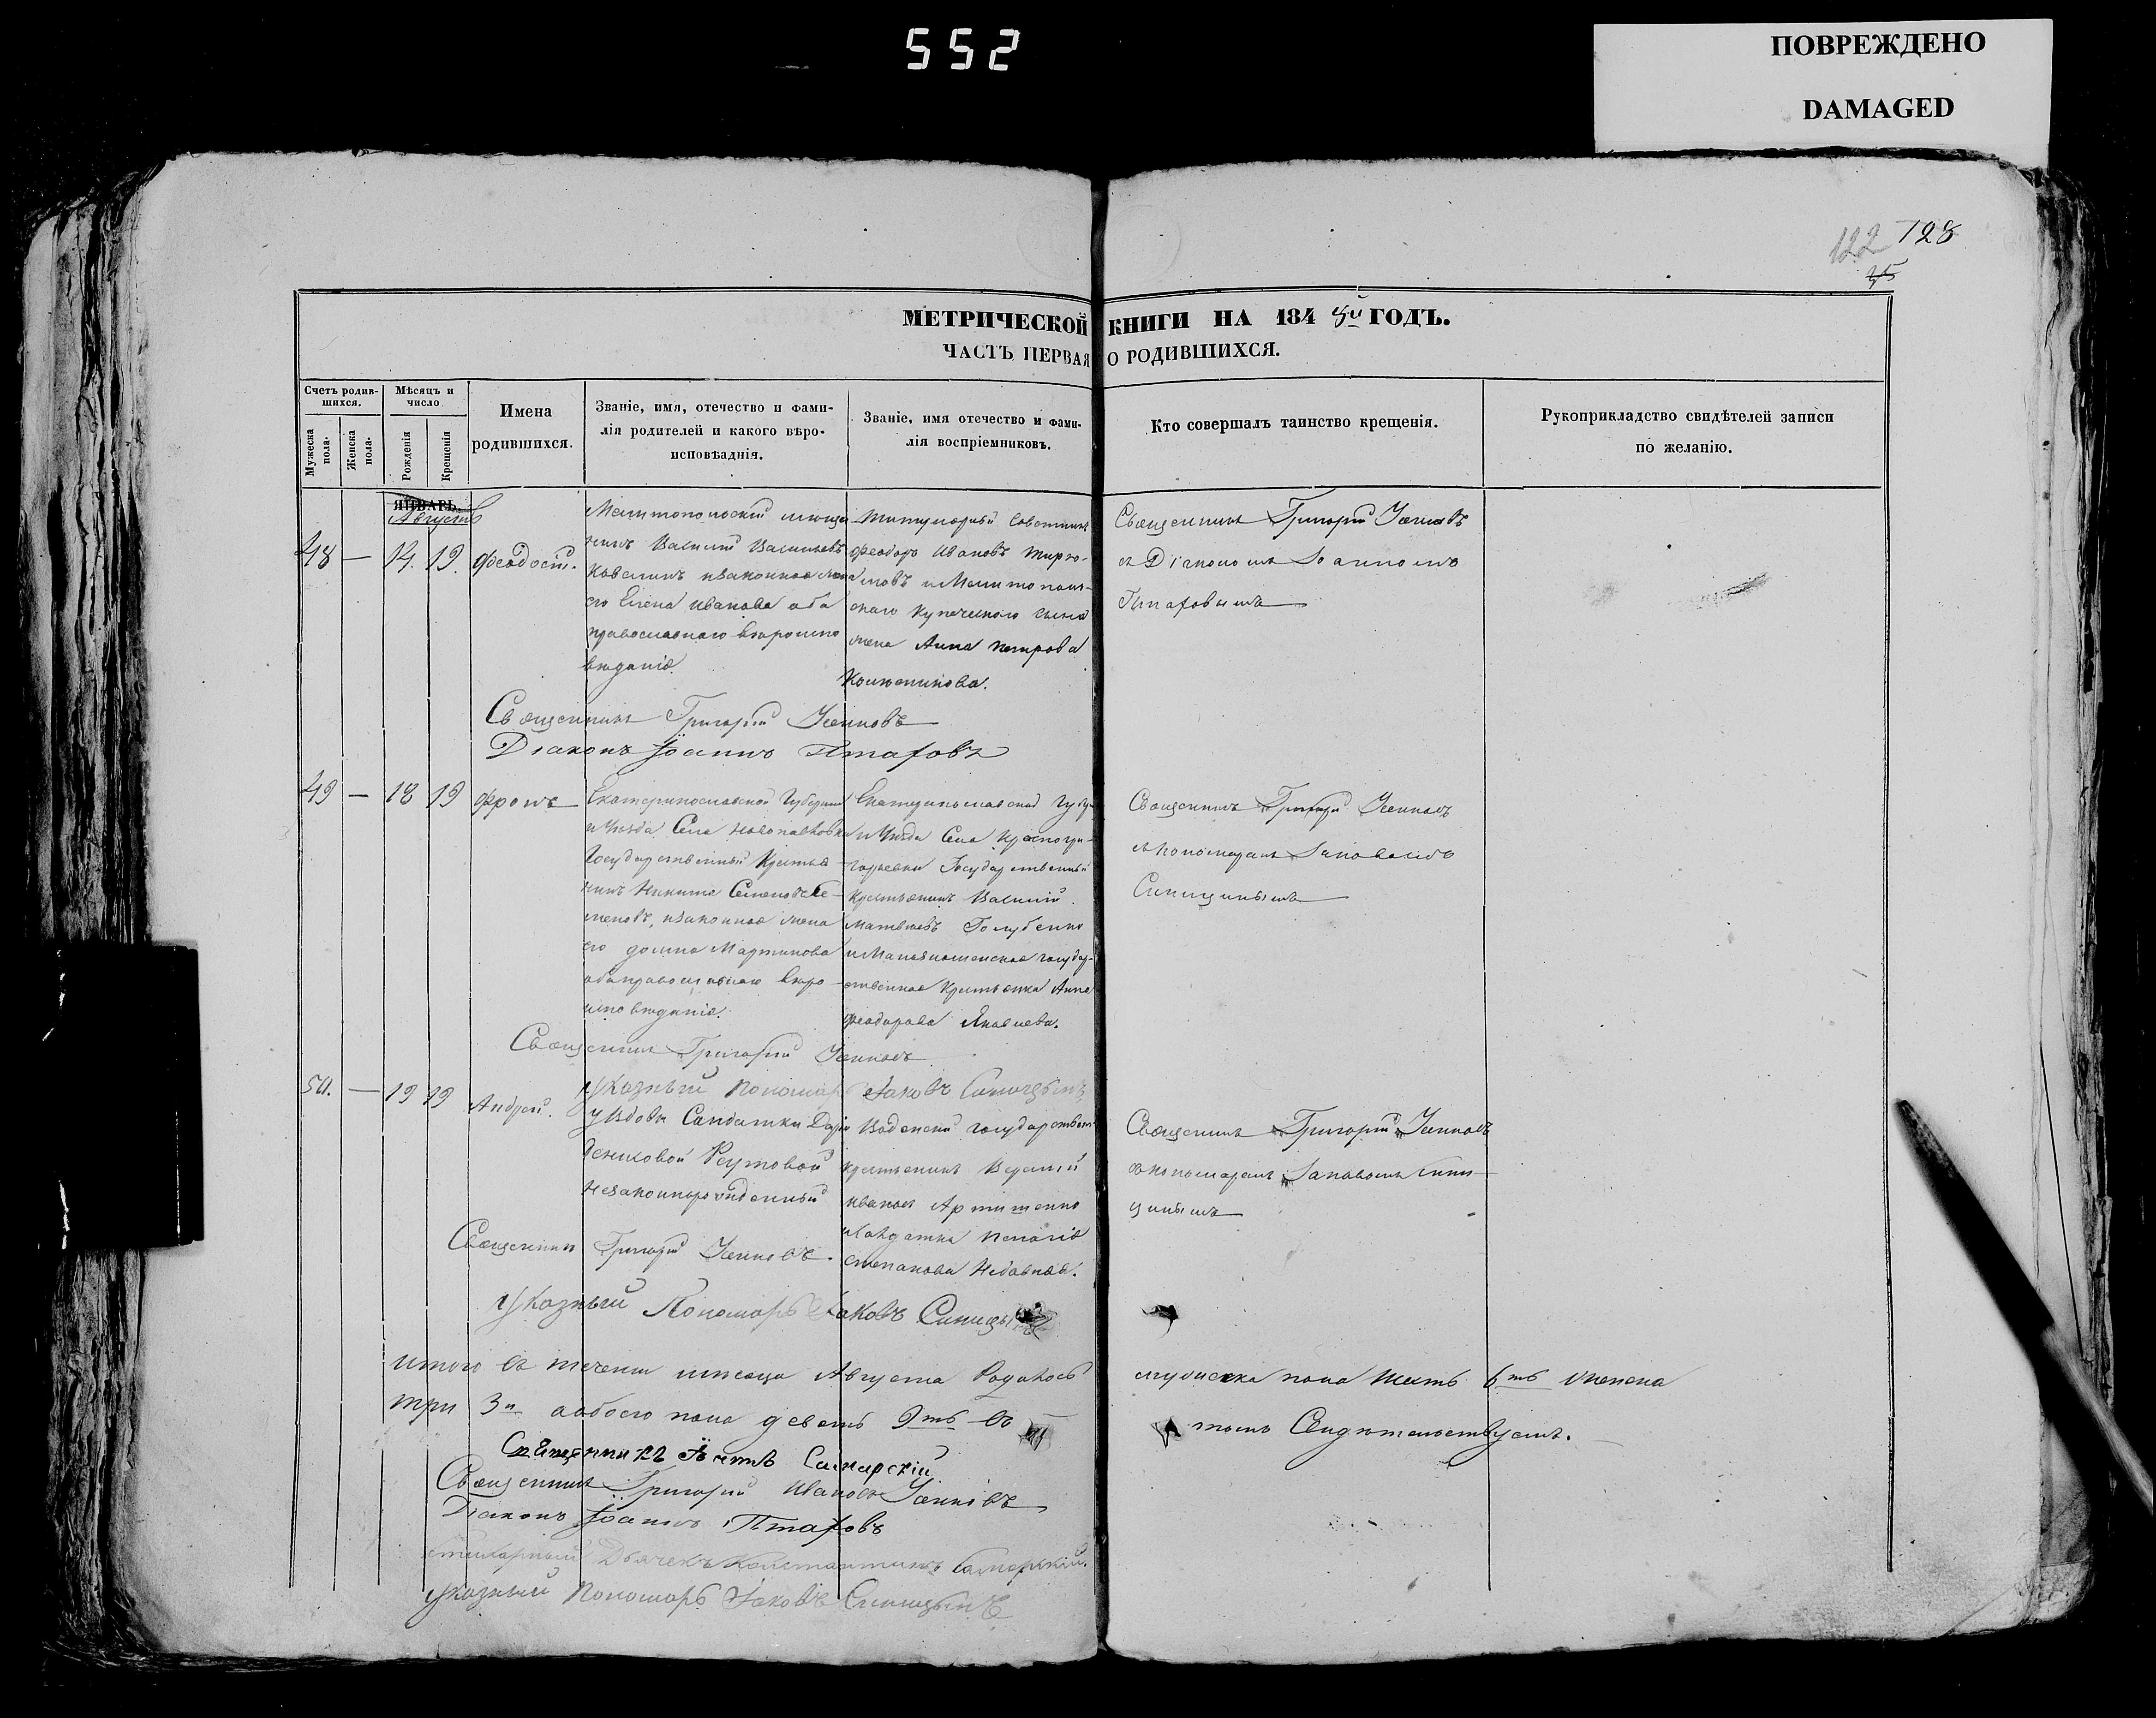 552
ПОВРЕЖДЕНО
DAMAGED
122 128
МЕТРИЧЕСКОЙ КНИГИ НА 184 ГОДЪ.
ЧАСТЬ ПЕРВАЯ О РОДИВШИХСЯ.
Счетъ родив-
шихся.
Мужеска пола.
Женска пола.
Мѣсяцъ и
число
Рожденія
Крещенія
Имена
родившихся.
Званіе, имя, отечество и фами-
лія родителей и какого вѣро-
исповѣаднія.
Званіе, имя отечество и фами-
лія воспріемниковъ.
Кто совершалъ таинство крещенія.
Рукоприкладство свидѣтелей записи
по желанію.
ЯНВАРЬ.
Августъ
48 — 14. 19.
Мелитопольскій мѣща-
нинъ Василій Васильевъ
и законная жена
его Елена Иванова оба
православнаго вѣроиспо
вѣданія.
Титулярный Совѣтникъ
Феодоръ Ивановъ
и Мелитополь-
скаго купеческаго сына
жена Анна Петрова
Священникъ Григорій
съ Діакономъ Іоанномъ
Птаховымъ
Священникъ Григорій
Діаконъ Іоаннъ Птаховъ
49 — 18 19 Фролъ
Екатеринославской Губерніи
и Уѣзда Села Новопавловки
Государственный Крестья
нинъ Никита Семеновъ Се-
меновъ, и законная жена
его Домна Мартинова
оба православнаго вѣро
исповѣданія.
Екатеринославской Губер
и Уѣзда Села Красногри-
горьевки Государственный
крестьянинъ Василій
Матвѣевъ Голубенко
и государ-
ственная крестьянка Анна
Феодорова Яковлева.
Священникъ Григорій
съ пономаремъ Іаковомъ
Синицинымъ
Священникъ Григорій
Указный Пономарь Іаковъ Синицынъ
50. — 19 19 Андрей.
у вдовы Солдатки Дарьи
Реутовой
Незаконнорожденный
государствен
крестьянинъ
Ивановъ Артименко
и Солдатка Пелагія
Степанова
Священникъ Григорій
съ пономаремъ Іаковомъ Сини-
цинымъ
Священникъ Григорій
Указный Пономарь Іаковъ Синицы
Итого въ теченіи мѣсяца Августа Родилось мужеска пола шесть 6ть женска
три 3и а обоего пола девять 9ть въ томъ Свидѣтельствуемъ.
Священникъ Самарскій
Священникъ Григорій Ивановъ
Діаконъ Іоаннъ Птаховъ
Стихарный Дьячекъ Константинъ Самарскій.
Указный Пономарь Іаковъ Синицынъ